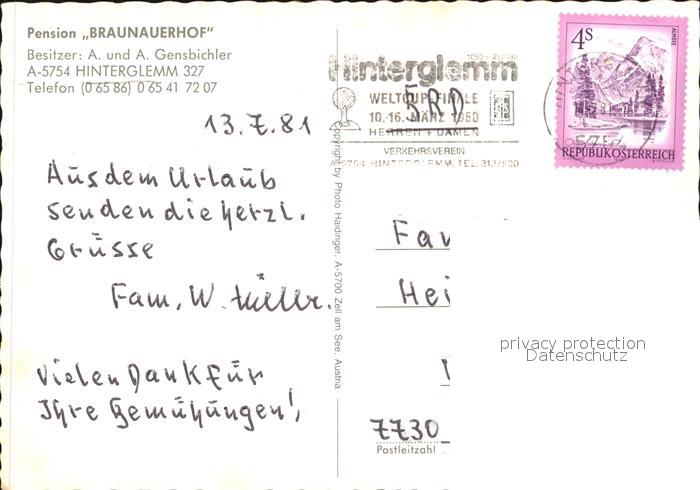 Pension „BRAUNAUERHOF"
Besitzer: A. und A. Gensbichler
A-5754 HINTERGLEMM 327
Telefon (0 65 86) 0 65 41 72 07
13.7.81
Aus dem Urlaub
senden die herzl.
Grüsse
Fam. W. Müller.
Vielen Dank für
Ihre Bemühungen!
Copyright by Photo Haidinger, A-5700 Zell am See, Austria
Hinterglemm
WELTCUP-FINALE
10.-16. MÄRZ 1980
HERREN + DAMEN
VERKEHRSVEREIN
A-5754 HINTERGLEMM, TEL. 313/500
BRD
4S
ALMSEE
REPUBLIK ÖSTERREICH
Fa
Hei
7730
Postleitzahl
privacy protection
Datenschutz